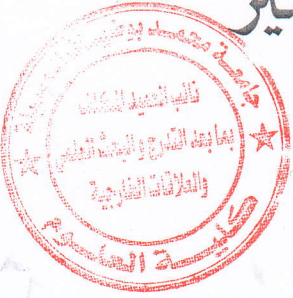 جامعة محمد بوضياف
نائب العميد المكلف
بما بعد التدرج والبحث العلمي
والعلاقات الخارجية
كليـــة العلـــوم